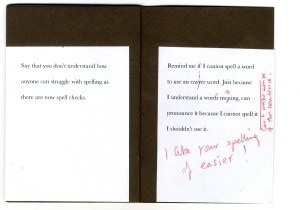 Say that you don't understand how
anyone can struggle with spelling as
there are now spell checks.
Remind me if I cannot spell a word
to use an easyer word. Just because
I understand a words mening, can
pronounce it because I cannot spell it
I shouldn't use it.
I like your spelling
of easier!